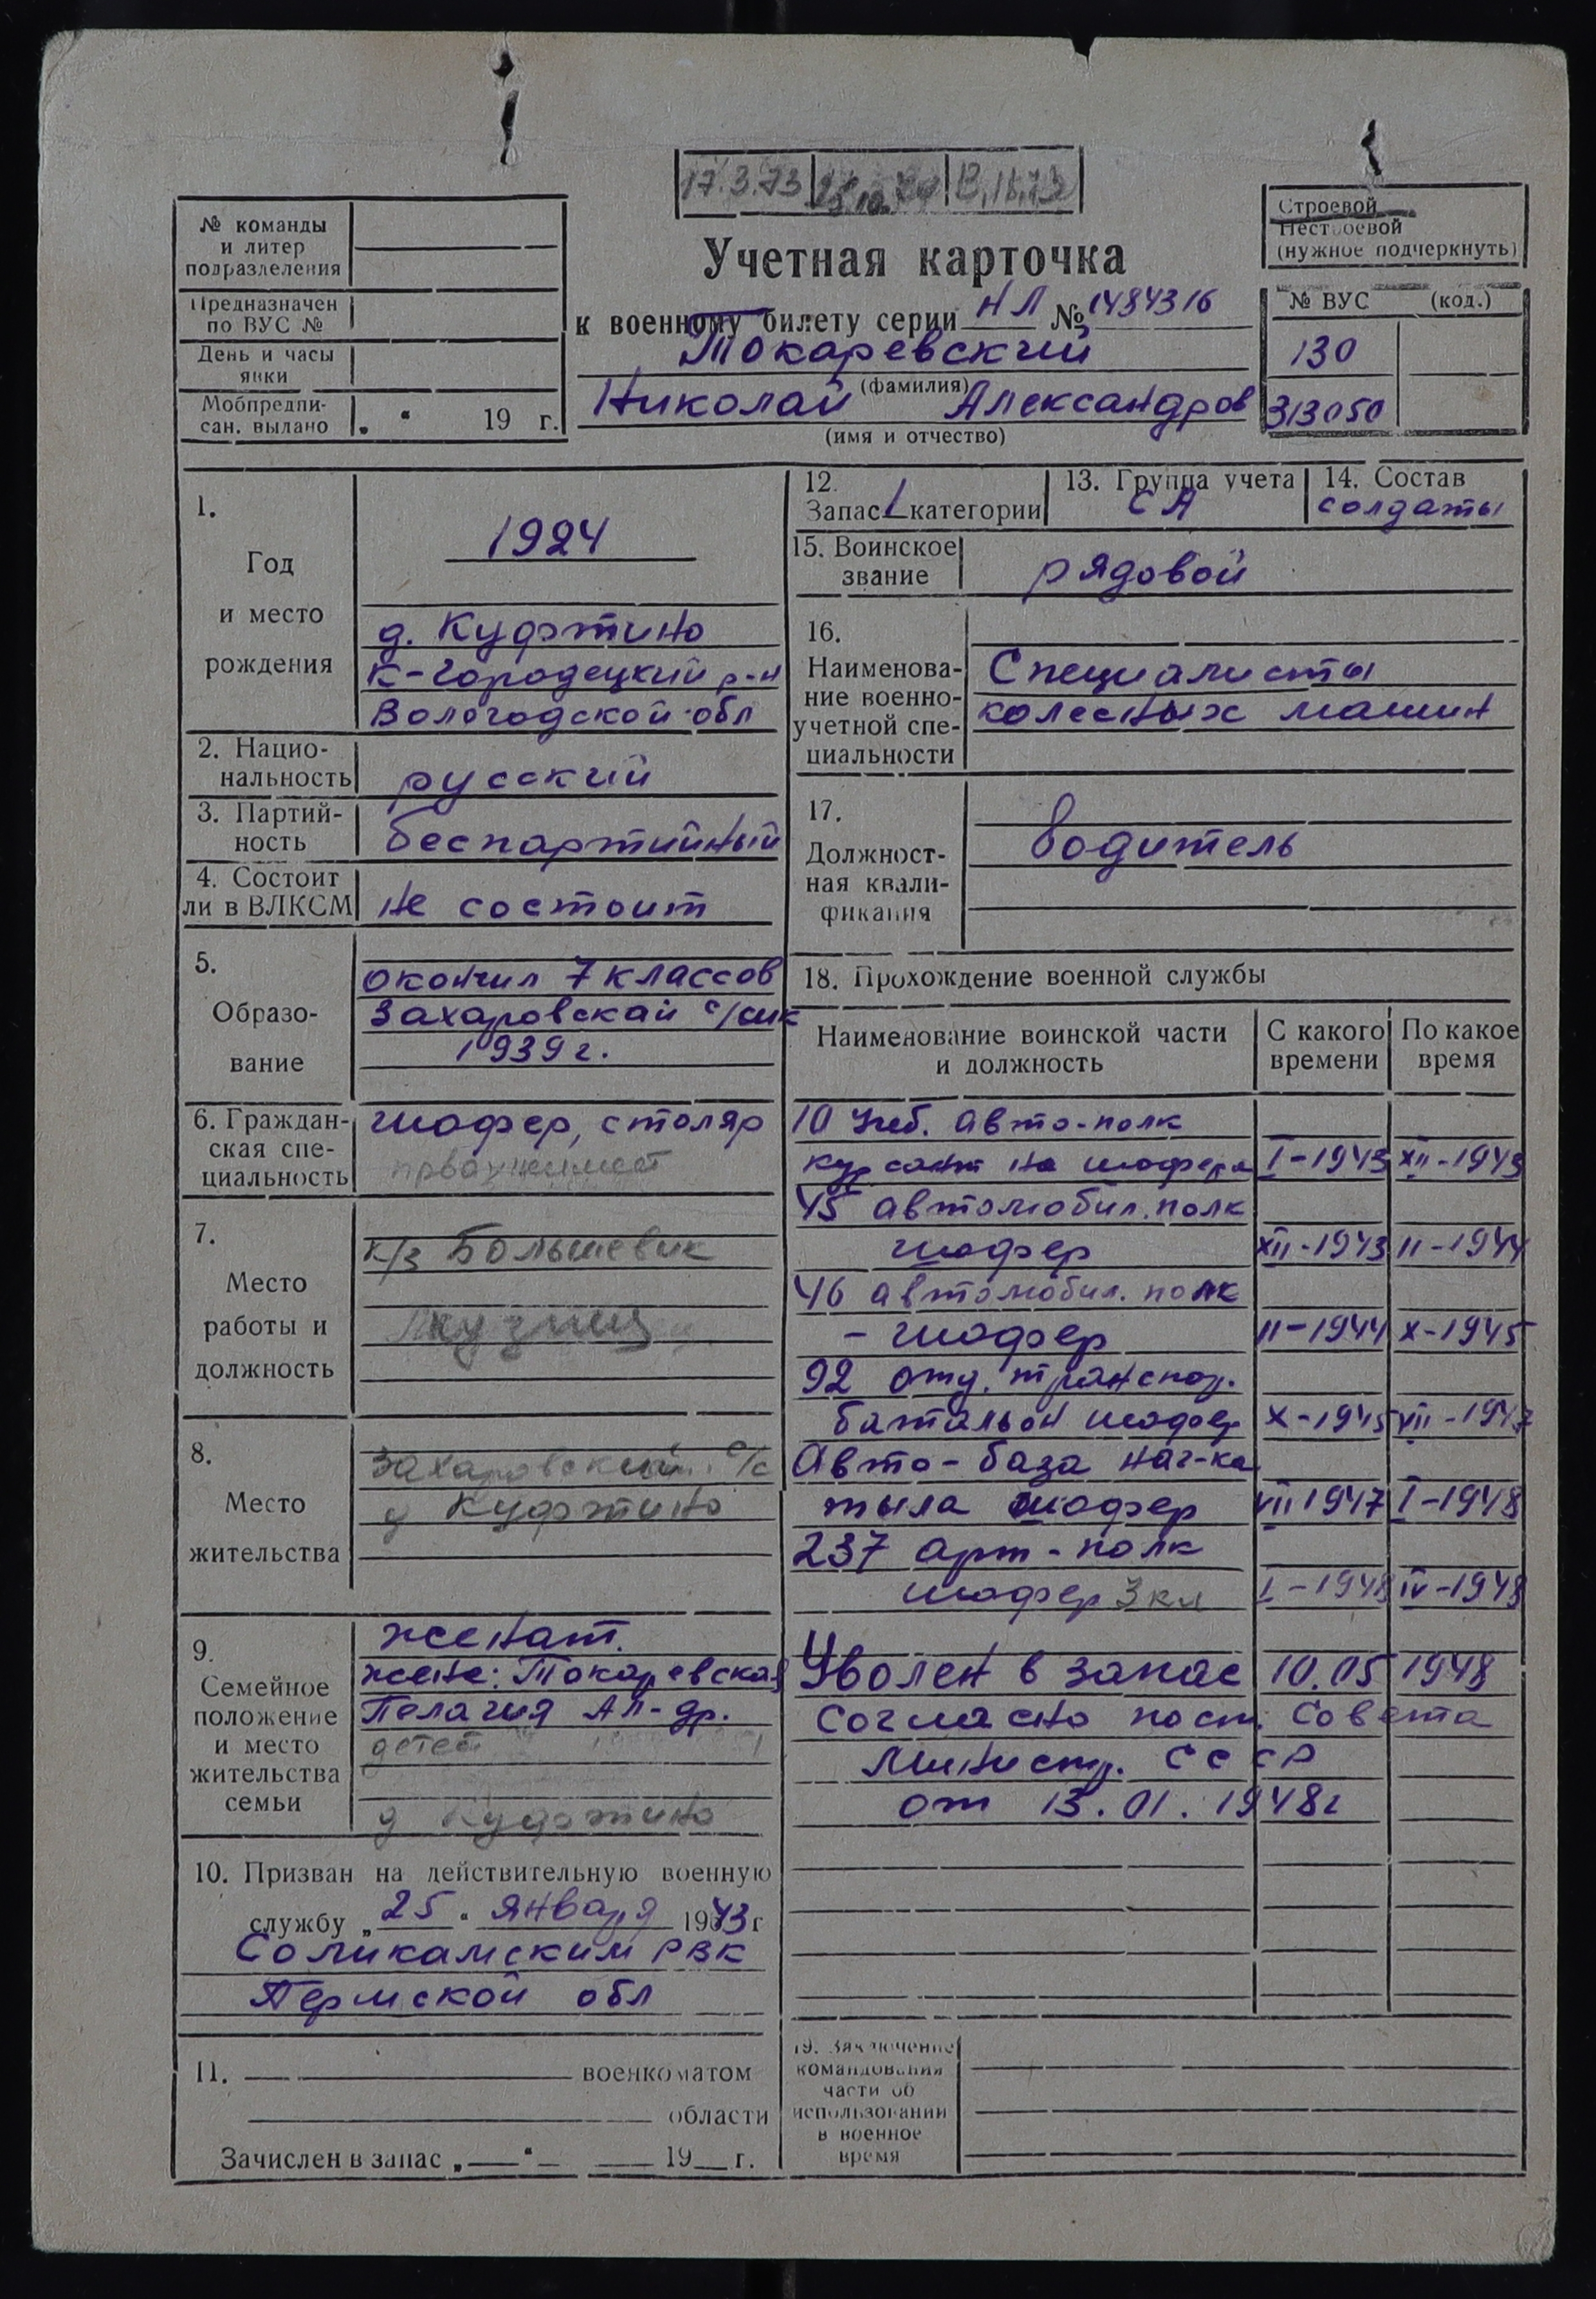 17.3.73
№ команды
и литер
подразделения
Предназначен
по ВУС №
День и часы
явки
Мобпредпи-
сан. выдано „ “ 19 г.
Учетная карточка
к военному билету серии НЛ № 1484316
Токаревский
(фамилия)
Николай Александров
(имя и отчество)
Строевой
Нестроевой
(нужное подчеркнуть)
№ ВУС (код.)
130
313050
1.
Год
и место
рождения
1924
д. Куфтино
К-Городецкий р-н
Вологодской обл
2. Нацио-
нальность русский
3. Партий-
ность беспартийный
4. Состоит
ли в ВЛКСМ не состоит
5.
Образо-
вание
окончил 7 классов
Захаровской с/шк
1939 г.
6. Граждан-
ская спе-
циальность
шофер, столяр
7.
Место
работы и
должность
к/з Большевик
кузнец
8.
Место
жительства
Захаровский с/с
д Куфтино
9.
Семейное
положение
и место
жительства
семьи
женат.
жена: Токаревская
Пелагия Ал-др.
детей
д Куфтино
10. Призван на действительную военную
службу „25“ января 1943 г
Соликамским РВК
Пермской обл
11. военкоматом
области
Зачислен в запас „ “ 19 г.
12.
Запас 1 категории
13. Группа учета
СА
14. Состав
солдаты
15. Воинское
звание рядовой
16.
Наименова-
ние военно-
учетной спе-
циальности
Специалисты
колесных машин
17.
Должност-
ная квали-
фикация
водитель
18. Прохождение военной службы
Наименование воинской части
и должность
С какого
времени
По какое
время
10 Учеб. авто-полк
курсант на шофера I-1943 XII-1943
45 автомобил. полк
шофер XII-1943 II-1944
46 автомобил. полк
- шофер II-1944 X-1945
92 отд. транспор.
батальон шофер X-1945 VII-1947
Авто-база нач-ка
тыла шофер VII 1947 I-1948
237 арт-полк
шофер 3 кл I-1948 IV-1948
Уволен в запас 10.05 1948
Согласно пост. Совета
Министр. СССР
от 13.01.1948г
19. Заключение
командования
части об
использовании
в военное
время